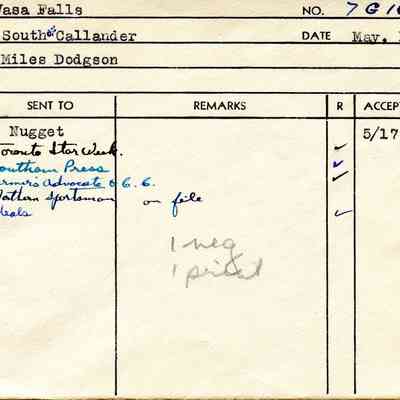 Wasa Falls NO. 7 G 1
South of Callander DATE May.
Miles Dodgson
SENT TO REMARKS R ACCEP
Nugget 5/17
Toronto Star Week. ✓
outham Press ✓
armer's Advocate ✓
orthern Sportsman on file
deals ✓
1 neg
1 print